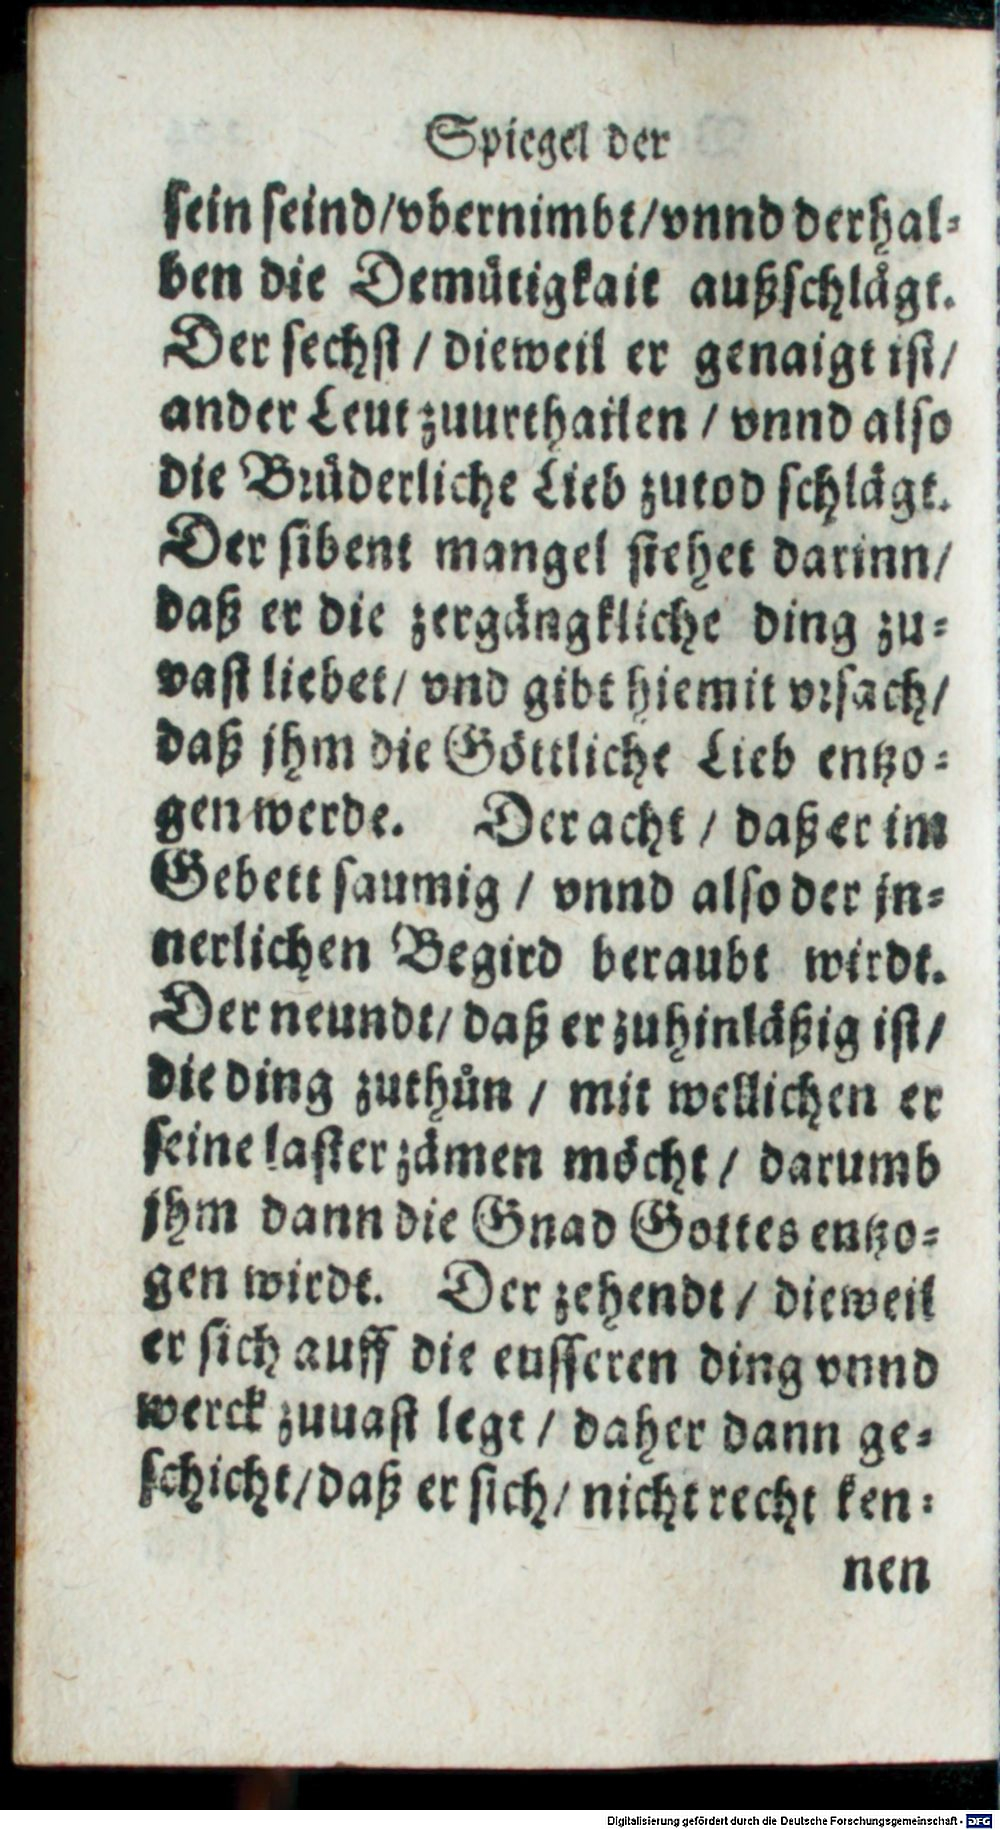 Spiegel der
sein seind/vbernimbt/vnnd derhal-
ben die Demütigkait außschlägt.
Der sechst / dieweil er genaigt ist/
ander Leut zuurthailen / vnnd also
die Brüderliche Lieb zutod schlägt.
Der sibent mangel stehet darinn/
daß er die zergängkliche ding zu-
vast liebet/ vnd gibt hiemit vrsach/
daß jhm die Göttliche Lieb entzo-
gen werde. Der acht / daß er im
Gebett saumig / vnnd also der jn-
nerlichen Begird beraubt wirdt.
Der neundt/ daß er zuhinläßig ist/
die ding zuthůn / mit wellichen er
seine laster zämen möcht / darumb
jhm dann die Gnad Gottes entzo-
gen wirdt. Der zehendt / dieweil
er sich auff die eusseren ding vnnd
werck zuuast legt / daher dann ge-
schicht/daß er sich/ nicht recht ken-
nen
Digitalisierung gefördert durch die Deutsche Forschungsgemeinschaft - DFG